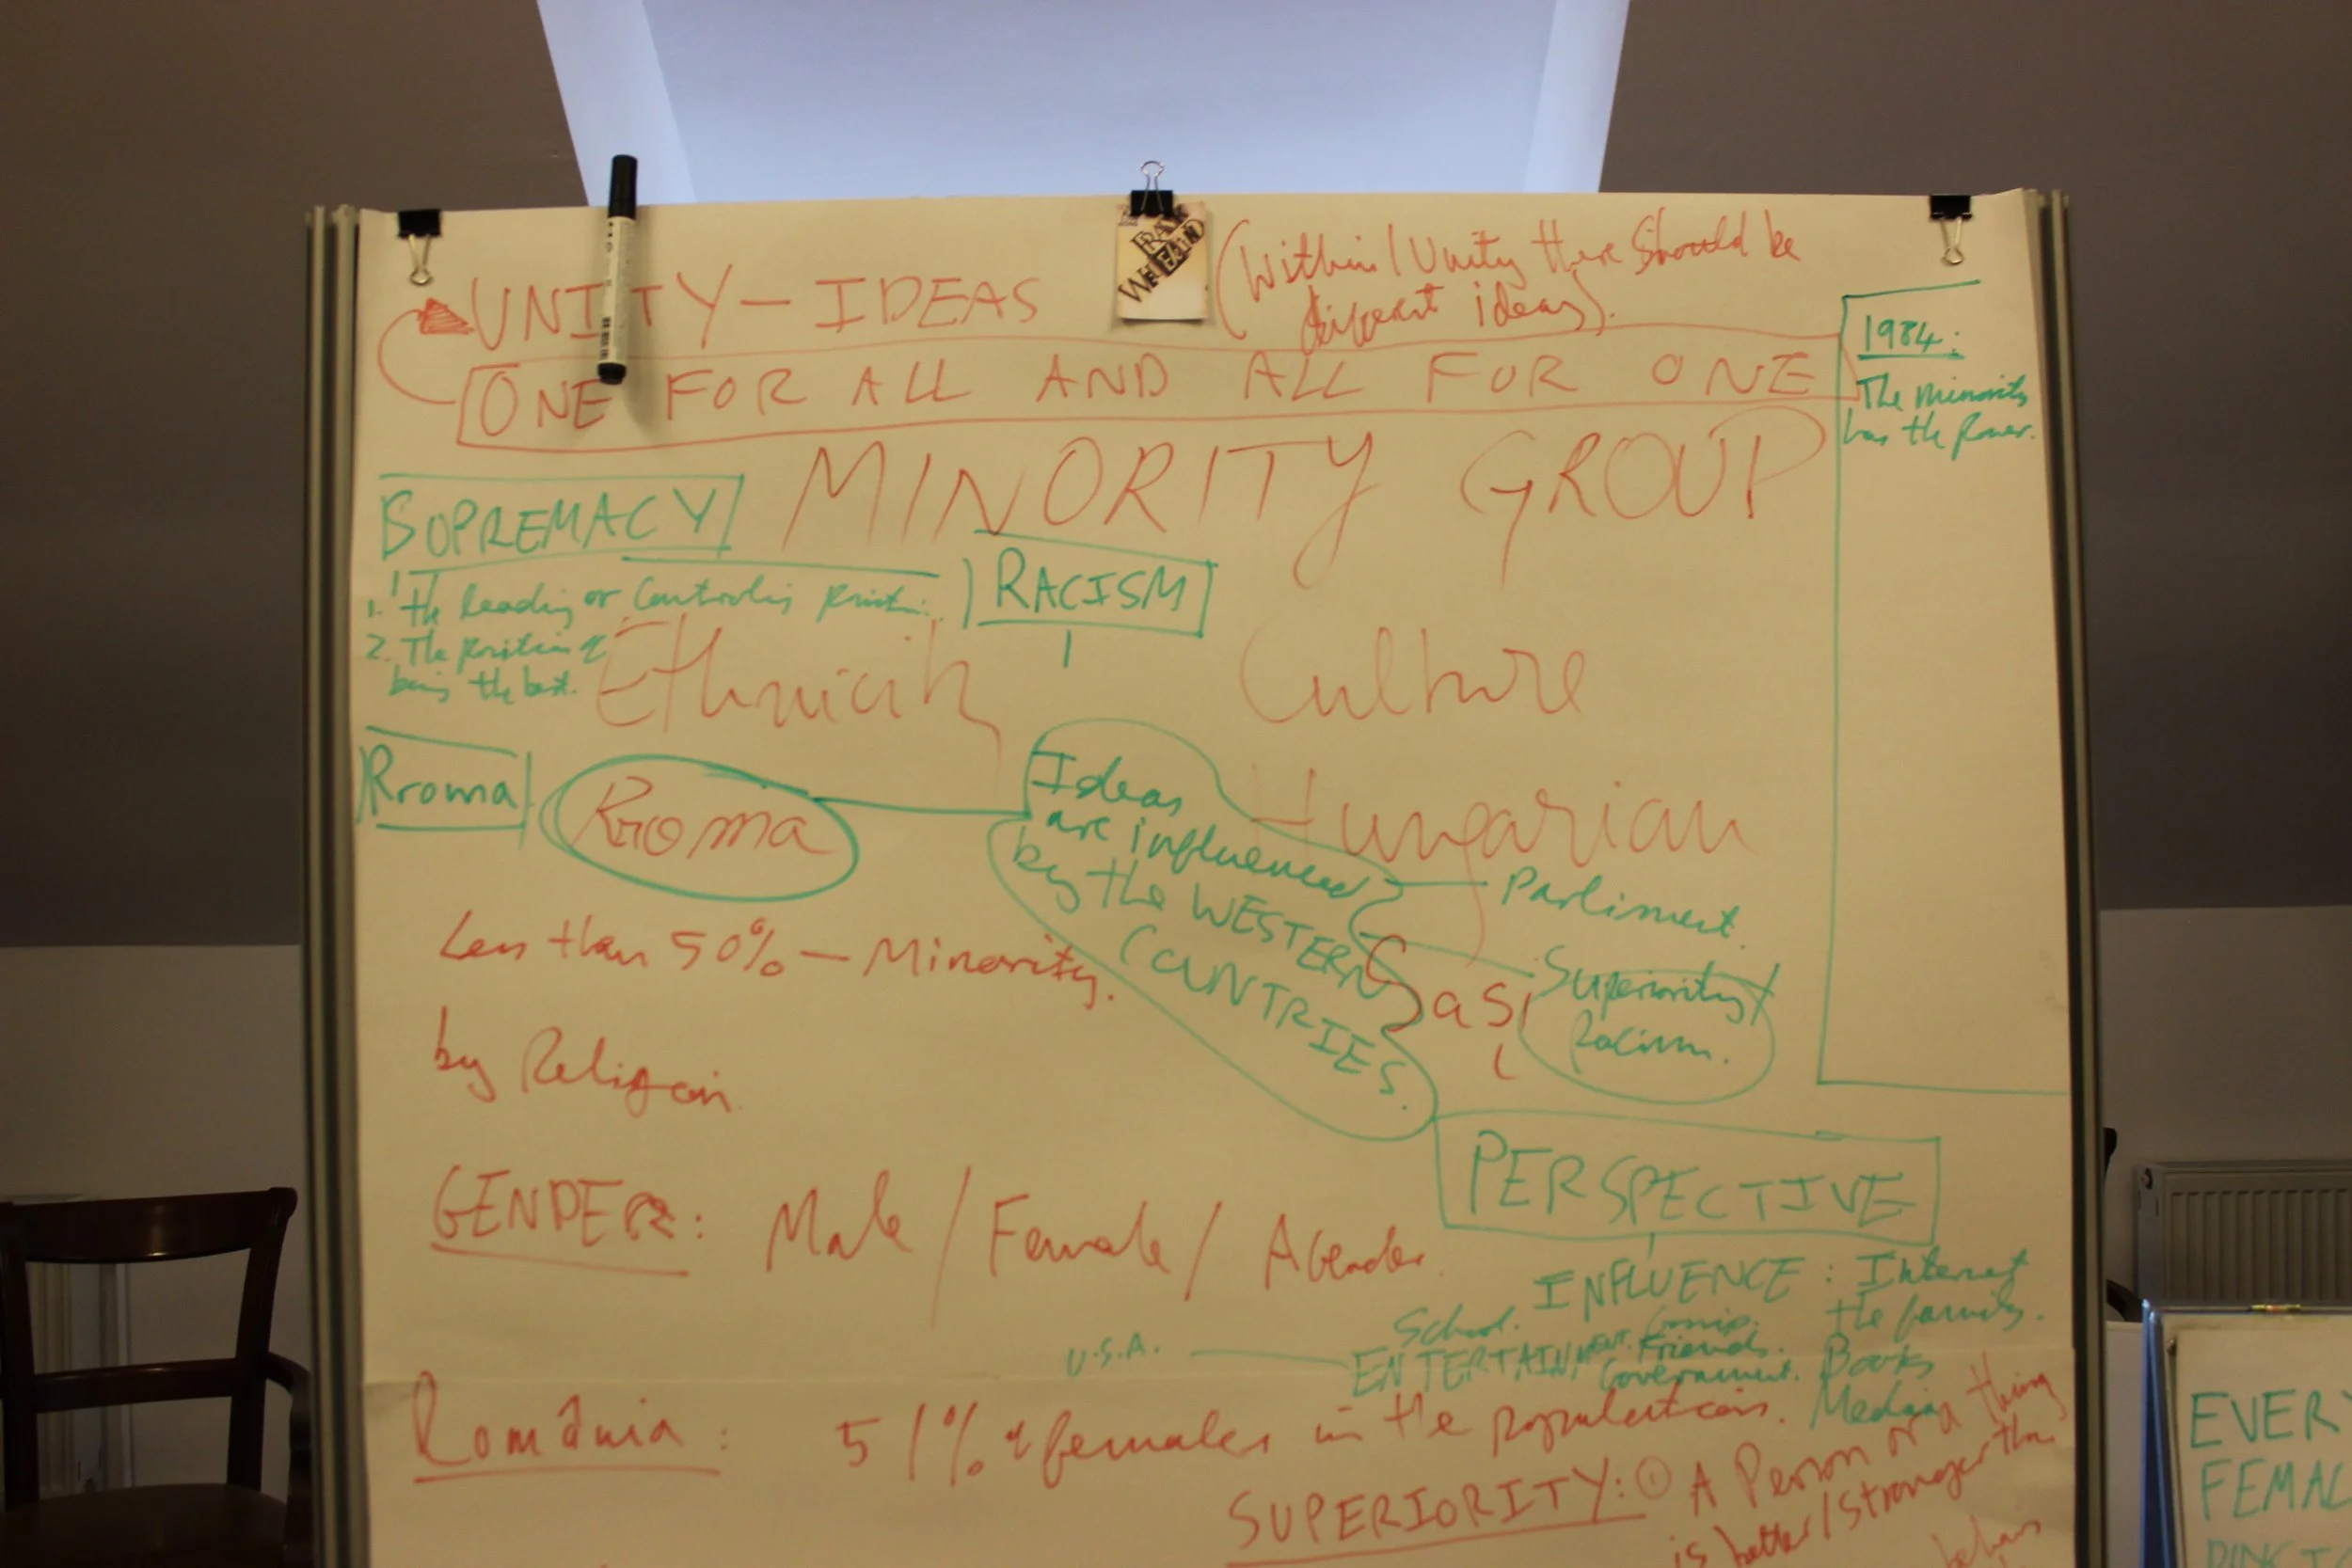 (Within / Unity there should be
different ideas).
UNITY – IDEAS
ONE FOR ALL AND ALL FOR ONE
1984:
The minority
has the power.
MINORITY GROUP
SUPREMACY
1. The leading or controling position.
2. The position of
being the best.
RACISM
Ethnicity
Culture
Rroma
Rroma
Ideas
are influenced
by the WESTERN
COUNTRIES.
Hungarian
Parliment.
Less than 50% – Minority.
Sași
Superiority/
Racism.
by Religion.
PERSPECTIVE
GENDER: Male / Female / Agender
INFLUENCE: Internet
School. Gossip. the family.
U.S.A. ENTERTAINMENT. Friends.
Government. Books
Media
România: 51% of females in the population.
SUPERIORITY: ① A Person or a thing
is better/stronger than
EVERY
FEMAL